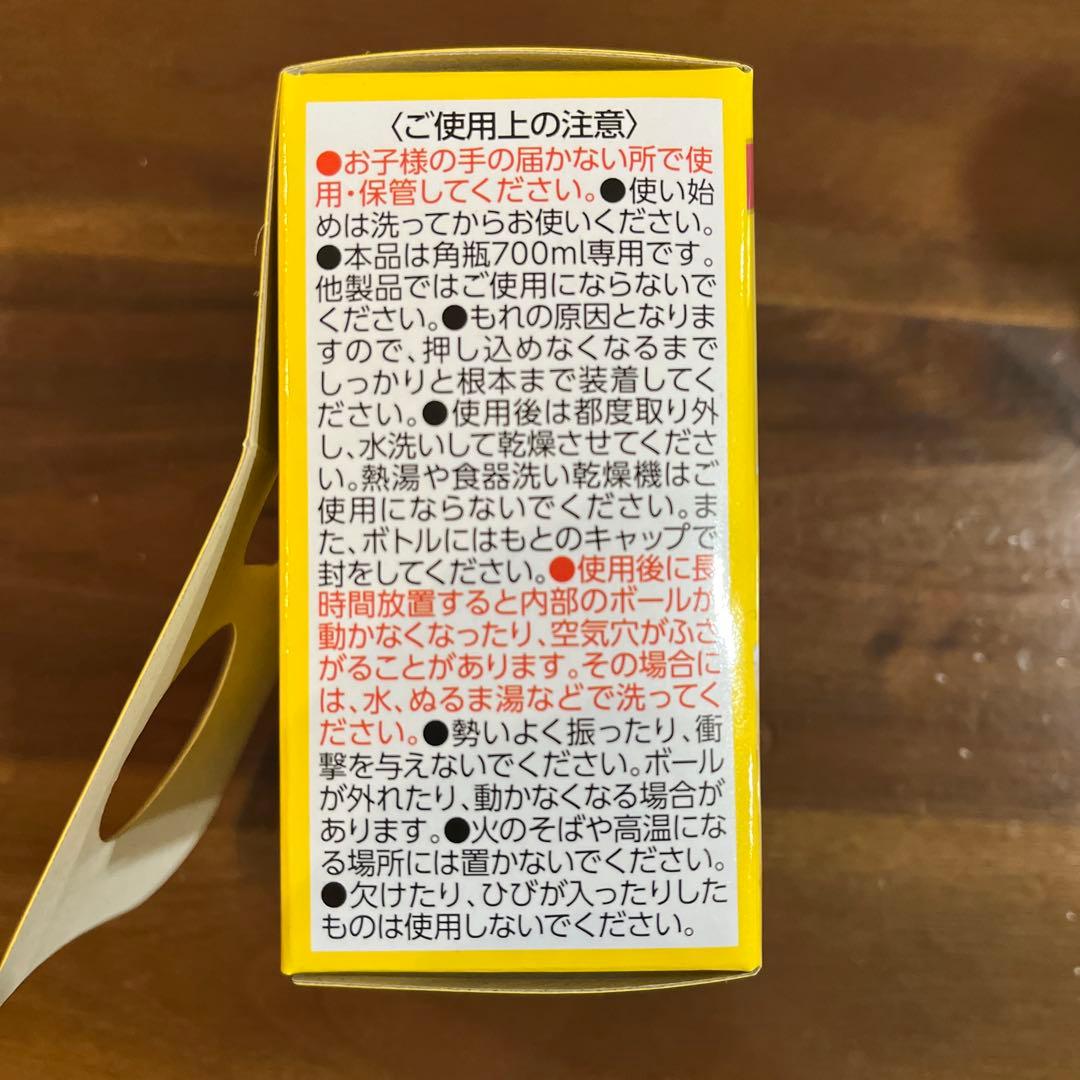 〈ご使用上の注意〉
●お子様の手の届かない所で使
用・保管してください。●使い始
めは洗ってからお使いください。
●本品は角瓶700ml専用です。
他製品ではご使用にならないで
ください。●もれの原因となりま
すので、押し込めなくなるまで
しっかりと根本まで装着してく
ださい。●使用後は都度取り外
し、水洗いして乾燥させてくださ
い。熱湯や食器洗い乾燥機はご
使用にならないでください。ま
た、ボトルにはもとのキャップで
封をしてください。●使用後に長
時間放置すると内部のボールが
動かなくなったり、空気穴がふさ
がることがあります。その場合に
は、水、ぬるま湯などで洗ってく
ださい。●勢いよく振ったり、衝
撃を与えないでください。ボール
が外れたり、動かなくなる場合が
あります。●火のそばや高温にな
る場所には置かないでください。
●欠けたり、ひびが入ったりした
ものは使用しないでください。